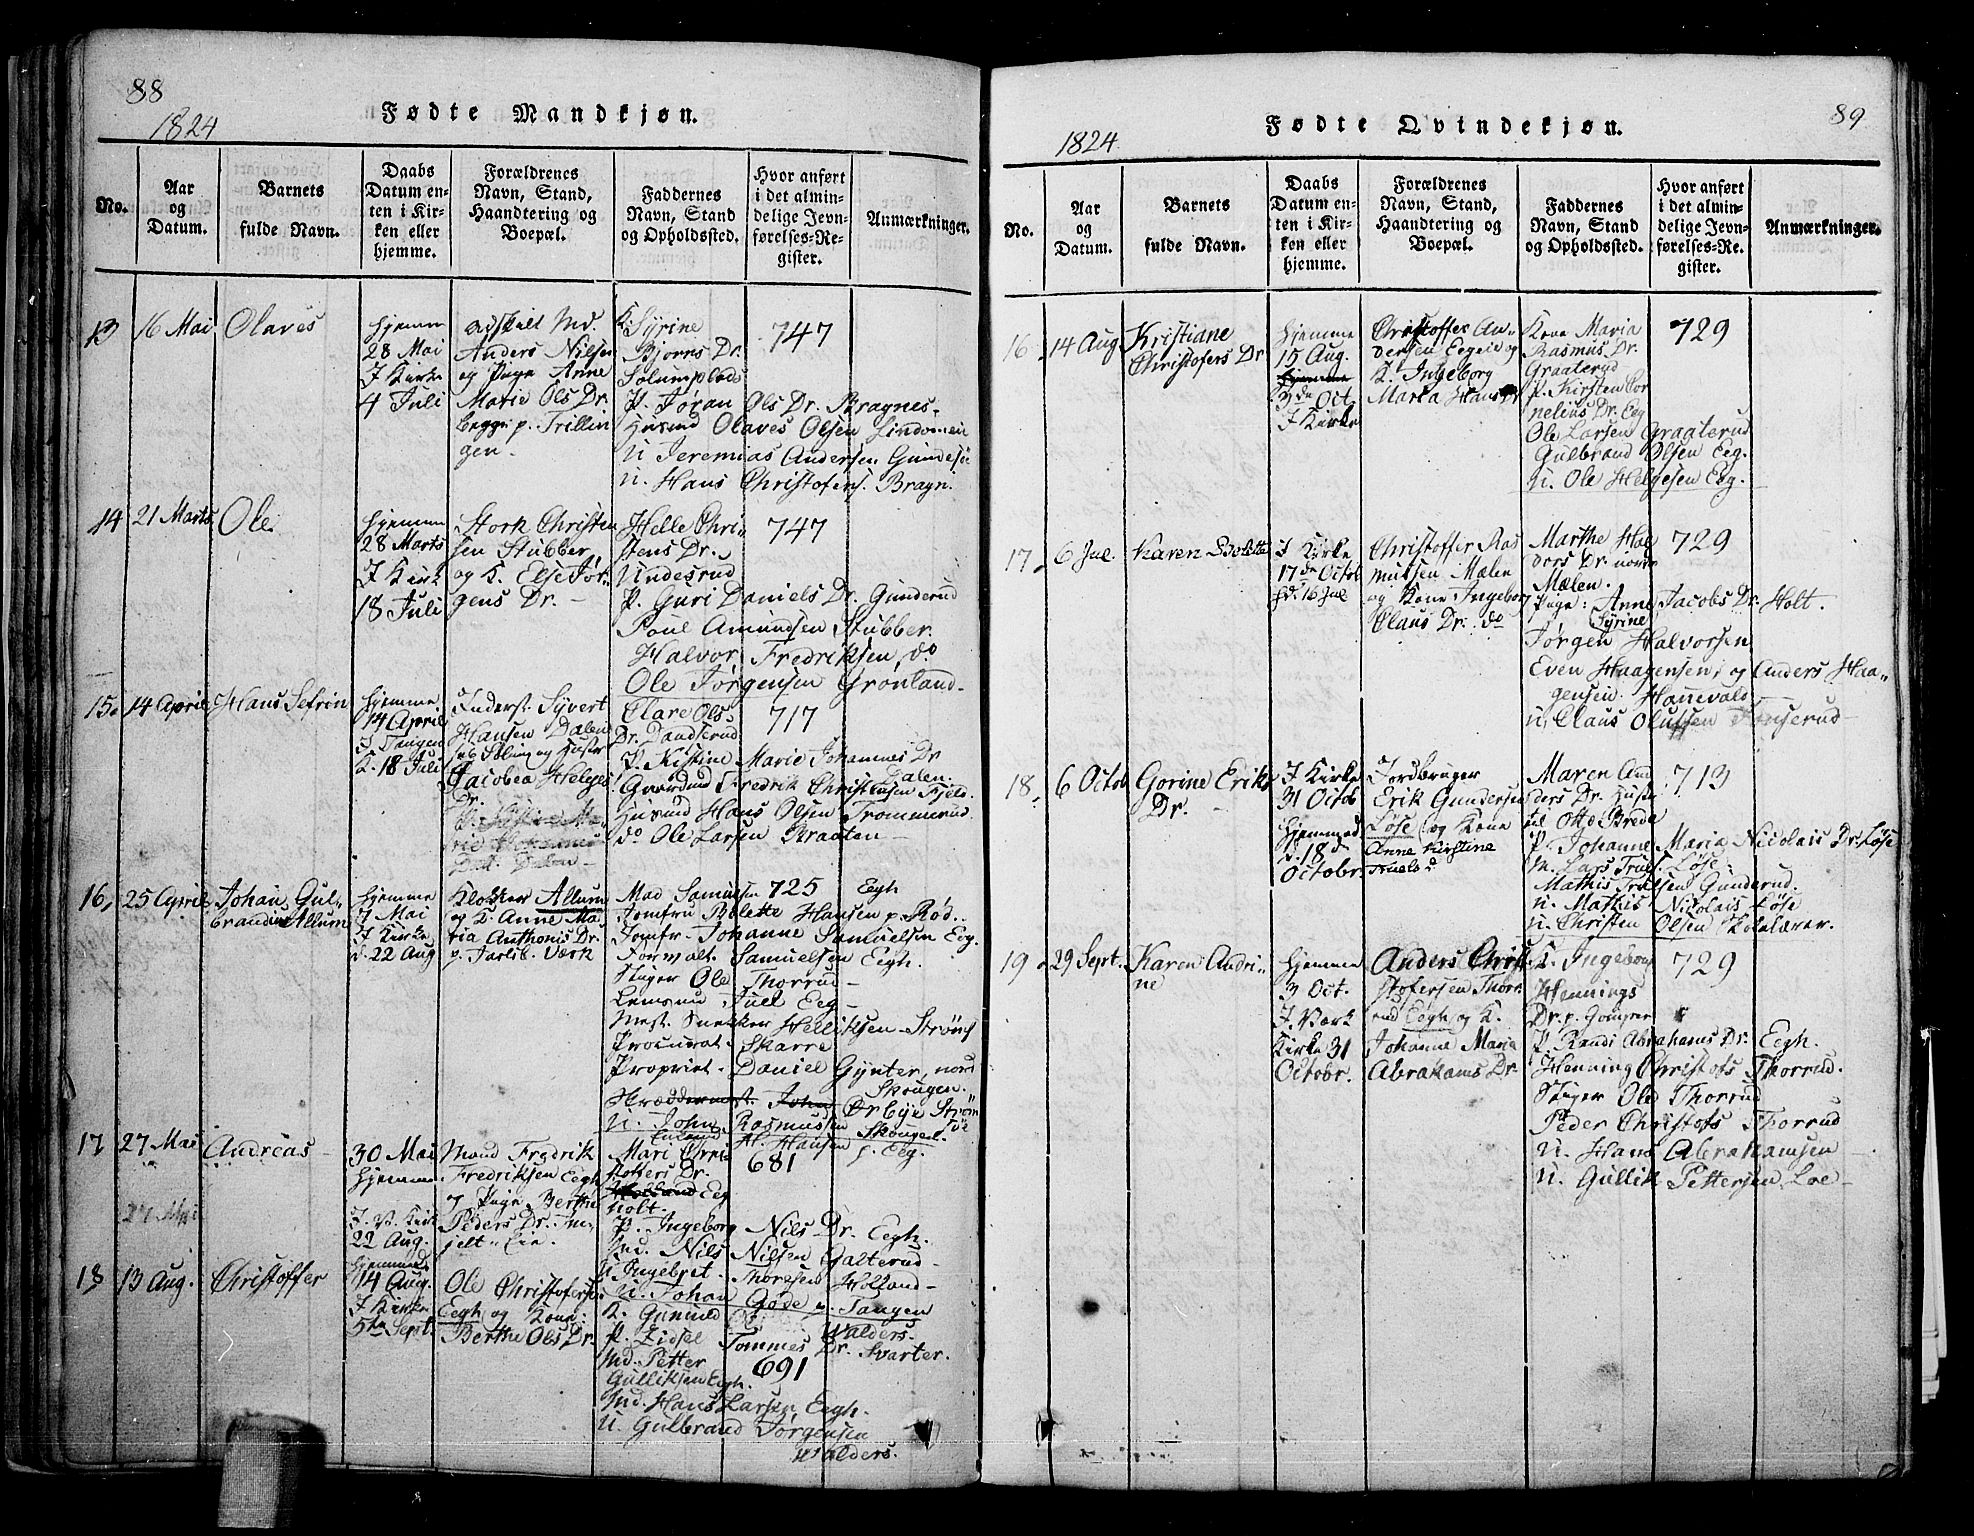 88
1824
Fødte Mandkjøn.
No.
Aar
og
Datum.
Barnets
fulde Navn.
Daabs
Datum en-
ten i Kir-
ken eller
hjemme.
Forældrenes
Navn, Stand,
Haandtering og
Boepæl.
Faddernes
Navn, Stand
og Opholdssted.
Hvor anført
i det almin-
delige Jevn-
førelses-Re-
gister.
Anmærkninger.
13
16 Mai
Olaves
hjemme
28 Mai
I Kirke
4 Juli
Anders Nilsen
og Pige Anne
Marie Ols Dr.
begge p. Trillin
gen.
K. Syrine
Bjørns Dr.
Solumplads
P. Jøran Ols Dr. Bragnes-
Husmd Olaves Olsen Lindomen
U Jeremias Andersen Gundesø
U. Hans Christofers. Bragn.
747
14
21 Marts
Ole
hjemme
28 Marts
I Kirk
18 Juli
Stork Christen
sen Stubber,
og K. Else Jør-
gens Dr. -
Helle Chri-
stens Dr.
Undesrud
P. Guri Daniels Dr. Gunderud
Poul Amundsen Stubber.
Halvor Fredriksen, do
Ole Jørgensen Grønland-
747
15.
14 April
Hans Sefrin
hjemme
14 April
I Tangen
K. 18 Juli
Inderst. Syvert
Hansen Dalen
Jacobea Helges
Dr.
Clare Ols-
Dr. Dandserud
P. Kistine Marie Johannes Dr
Dalen.
Gaardmd Fredrik Christensen Fjeld.
Husmd Hans Olsen Trommerud
do Ole Larsen Braaten -
717
16,
25 April
Johan Gul-
brandus Allum
hjemme
7 Mai
I Kirke
d. 22 Aug
Klokker Allum
og K. Anne Ma
ria Anthonis Dr.
p. Farlib. Værk
Mad Samuelsen
Eegh
Jomfru Bolette Hansen p. Rød..
Jomfr. Johanne Samuelsen Eeg.
Forvalt. Samuelsen Eegh.
Stiger Ole Thorrud-
Lensmd Juel Eeg-
Mest. Snekker Helliksen - Strøms
Procurat. Skarre
Propriet. Daniel Gynter, nord
Skougen.
725
17
27 Mai
Andreas -
30 Mai
hjemme.
I. V. Kirk
22 Aug.
Mand Fredrik
Fredriksen Eegh
og Pige Berthe
Peders Dr. Fu-
jelt- Lia.
Mari Chri
stoffers Dr.
Holt.
P. Ingeborg Nils Dr. Eegh.
Md. Nils Nilsen Galterud-
U Ingebret Thoresen Holland-
U. Johan Gøde p. Tangen
681
18
13 Aug.
Christoffer
hjemme
14 Aug.
I Kirke
5te Sept.
Ole Christofersen
Eegh og Kone:
Berthe Ols Dr.
K. Gunild
Walders-
P. Zidsel Tommes Dr. Svarter.
Md. Petter
Gulliksen Eegh.
Md. Hans Larsen Eegh.
U. Gulbrand Jørgensen
Walders.
691
89
1824
Fødte Qvindekjøn.
No.
Aar
og
Datum.
Barnets
fulde Navn.
Daabs
Datum en-
ten i Kir-
ken eller
hjemme.
Forældrenes
Navn, Stand,
Haandtering og
Boepæl.
Faddernes
Navn, Stand
og Opholdssted.
Hvor anført
i det almin-
delige Jevn-
førelses-Re-
gister.
Anmærkninger.
16.
14 Aug
Kristiane
Christofers Dr
hjemme
15 Aug.
hjemme
3de Oct
I Kirke
Christoffer An-
dersen Eegeie og
K. Ingeborg
Maria Hans Dr
Kone Maria
Rasmus Dr.
Graaterud
P. Kirsten Cor
nelius Dr. Eeg
Ole Larsen Graaterud
Gulbrand Olsen Eeg.
U. Ole Helgesen Eeg.
729
17.
6 Jul.
Karen Bolette
I Kirke
17de Octob
hd. 16 Jul
Christoffer Ras
mussen Mælen
og Kone Ingeborg
Claus Dr. do
Marthe Hal
vors Dr. nordr
Mælen.
Pige: Anne Jacobs Dr. Holt.
Syrine
Jørgen Halvorsen
Even Haagensen, og Anders Haa-
gensen. Hanevald
U. Claus Olufsen Fonserud-
729
18.
6 Octob
Gorine Eriks
Dr.
I Kirke
31 Octob
Hjemmed
d. 18de
Octobr.
Jordbruger
Erik Gundersen
Løse og Kone
Anne Kirstine
Truels d
Maren And
ders Dr. Huste
til Otto Brede
P. Johanne Maria Nicolais Dr. Løse
M. Lars Truls. Løse.
Mathis Trulsen Gunderud.
U. Mathis Nikolais Løse
U. Christen Olsen Skolelærer.
713
19.
29 Sept.
Karen Andri-
ne
hjemme
3 Oct.
I. Værk
Kirke 31
Octobr.
Anders Chri
stofersen Thorr
rud Eegh og K.
Johanne Maria
Abrahams Dr
K. Ingeborg
Hennings
Dr. p. Gomper
P Randi Abrahams Dr. Eegh.
Henning Christofs Thorrud.
Stiger Ole Thorrud
Peder Christofs Thorrud
U. Hans Abrahamsen
U. Gullik Pettersen Loe-
729